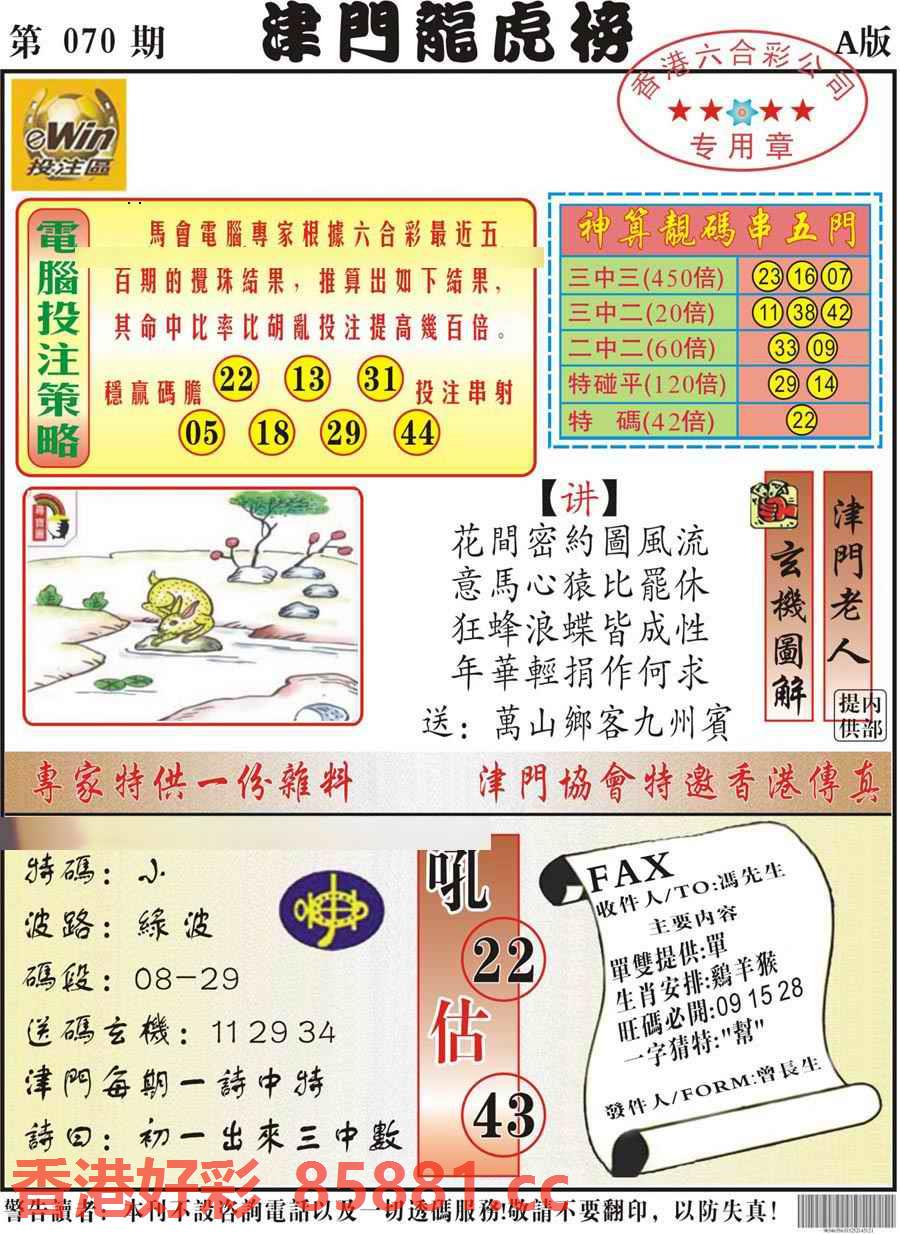 第 070 期
津門龍虎榜
A版
香港六合彩公司
专用章
eWin
投注區
電腦投注策略
馬會電腦專家根據六合彩最近五
百期的攪珠結果，推算出如下結果，
其命中比率比胡亂投注提高幾百倍。
穩贏碼膽 22 13 31 投注串射
05 18 29 44
神算靚碼串五門
三中三(450倍) 23 16 07
三中二(20倍) 11 38 42
二中二(60倍) 33 09
特碰平(120倍) 29 14
特 碼(42倍) 22
尋寶圖
【讲】
花間密約圖風流
意馬心猿比罷休
狂蜂浪蝶皆成性
年華輕捐作何求
送：萬山鄉客九州賓
玄機圖解
津門老人
内部提供
專家特供一份雜料
津門協會特邀香港傳真
特碼：小
波路：綠波
碼段：08-29
送碼玄機：11 29 34
津門每期一詩中特
詩曰：初一出來三中數
吼
22
估
43
FAX
收件人/TO:馮先生
主要内容
單雙提供:單
生肖安排:鷄羊猴
旺碼必開:09 15 28
一字猜特:"幫"
發件人/FORM:曾長生
香港好彩 85881.cc
警告讀者：本刊不設咨詢電話以及一切透碼服務!敬請不要翻印，以防失真!